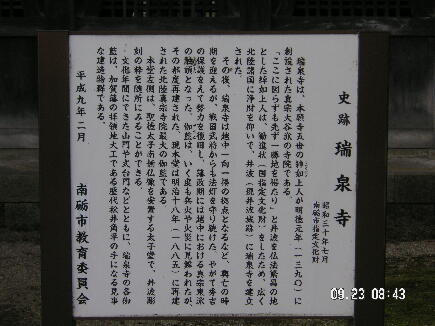 史跡 瑞泉寺
昭和三十年七月
南砺市指定文化財
瑞泉寺は、本願寺五世の綽如上人が明徳元年(一三九〇)に
創設された真宗大谷派の寺院である。
「ここに図らずも先ず一勝地を得たり」と井波を仏法繁昌の地
とした綽如上人は、勧進状(国指定文化財)をしたため、広く
北陸諸国に浄財を仰いで、井波(現井波城跡)に瑞泉寺を建立
された。
その後、瑞泉寺は越中一向一揆の拠点となるなど、興亡の時
期を迎えるが、戦国武将からも法灯を守り続けた。やがて孝吉
の保護をえて勢力を復旧し、藩政期には越中における真宗東派
の触頭となった。伽藍は、いく度も兵火や火災に見舞われたが、
その都度再建された。現本堂は明治十八年(一八八五)に再建
された北陸真宗寺院最大の伽藍である。
本堂左側は、聖徳太子南無仏像を安置する太子堂で、井波彫
刻の粋を随所にみることができる。
文化年間にできた山門や式台門などとともに、瑞泉寺の各伽
藍は、加賀藩の拝領地大工である歴代松井角平の手になる見事
な建造物群である。
平成九年二月
南砺市教育委員会
09.23 08:43